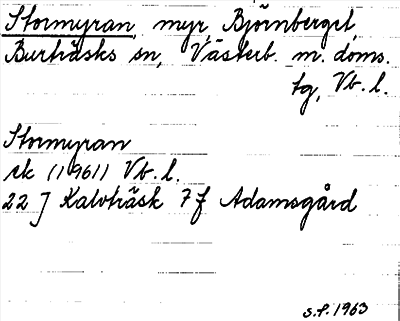 Stormyran, myr, Björnberget,
Burträsks sn, Västerb. m. doms.
tg, Vb. l.
Stormyran
rk (1961) Vb. l.
22 J Kalvträsk 7 f Adamsgård
S.P. 1963